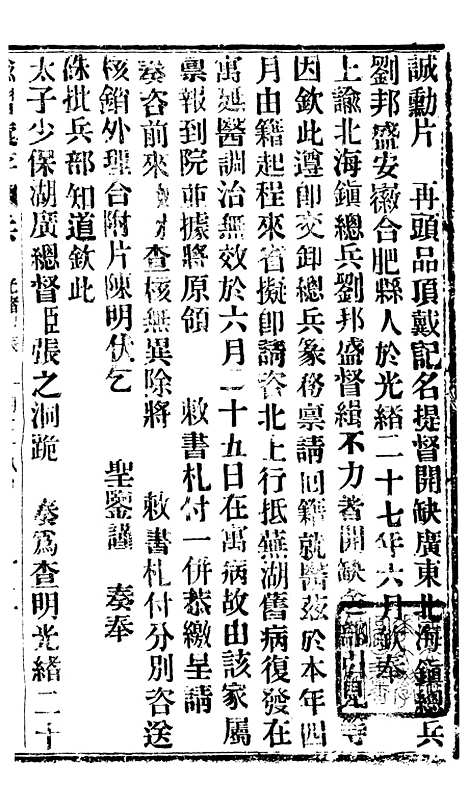 誠勳片　再頭品頂戴記名提督開缺廣東北海鎮總兵
劉邦盛安徽合肥縣人於光緒二十七年六月欽奉
上諭北海鎮總兵劉邦盛督緝不力著開缺部引見等
因欽此遵卽交卸總兵篆務禀請回籍就醫茲於本年四
月由籍起程來省擬卽請咨北上行抵蕪湖舊病復發在
寓延醫調治無效於六月二十五日在寓病故由該家屬
禀報到院並據將原領　敕書札付一併恭繳呈請
奏咨前來　查核無異除將　敕書札付分別咨送
核銷外理合附片陳明伏乞　聖鑒謹　奏奉
硃批兵部知道欽此
太子少保湖廣總督臣張之洞跪　奏爲查明光緒二十